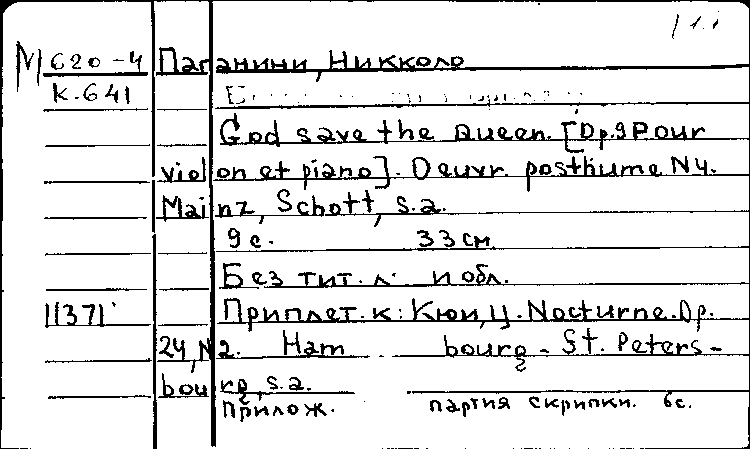 М 620-4 Паганини, Никколо
К.641
God save the Queen. [Op.9 Pour
violon et piano]. Oeuvr. posthume N4.
Mainz, Schott, s.a.
9 с. 33 см.
Без тит. л. и обл.
11371 Приплет. к: Кюи, Ц. Nocturne. Op.
24, N2. Hambourg - St. Peters-
bourg, s.a.
Прилож. партия скрипки. 6с.